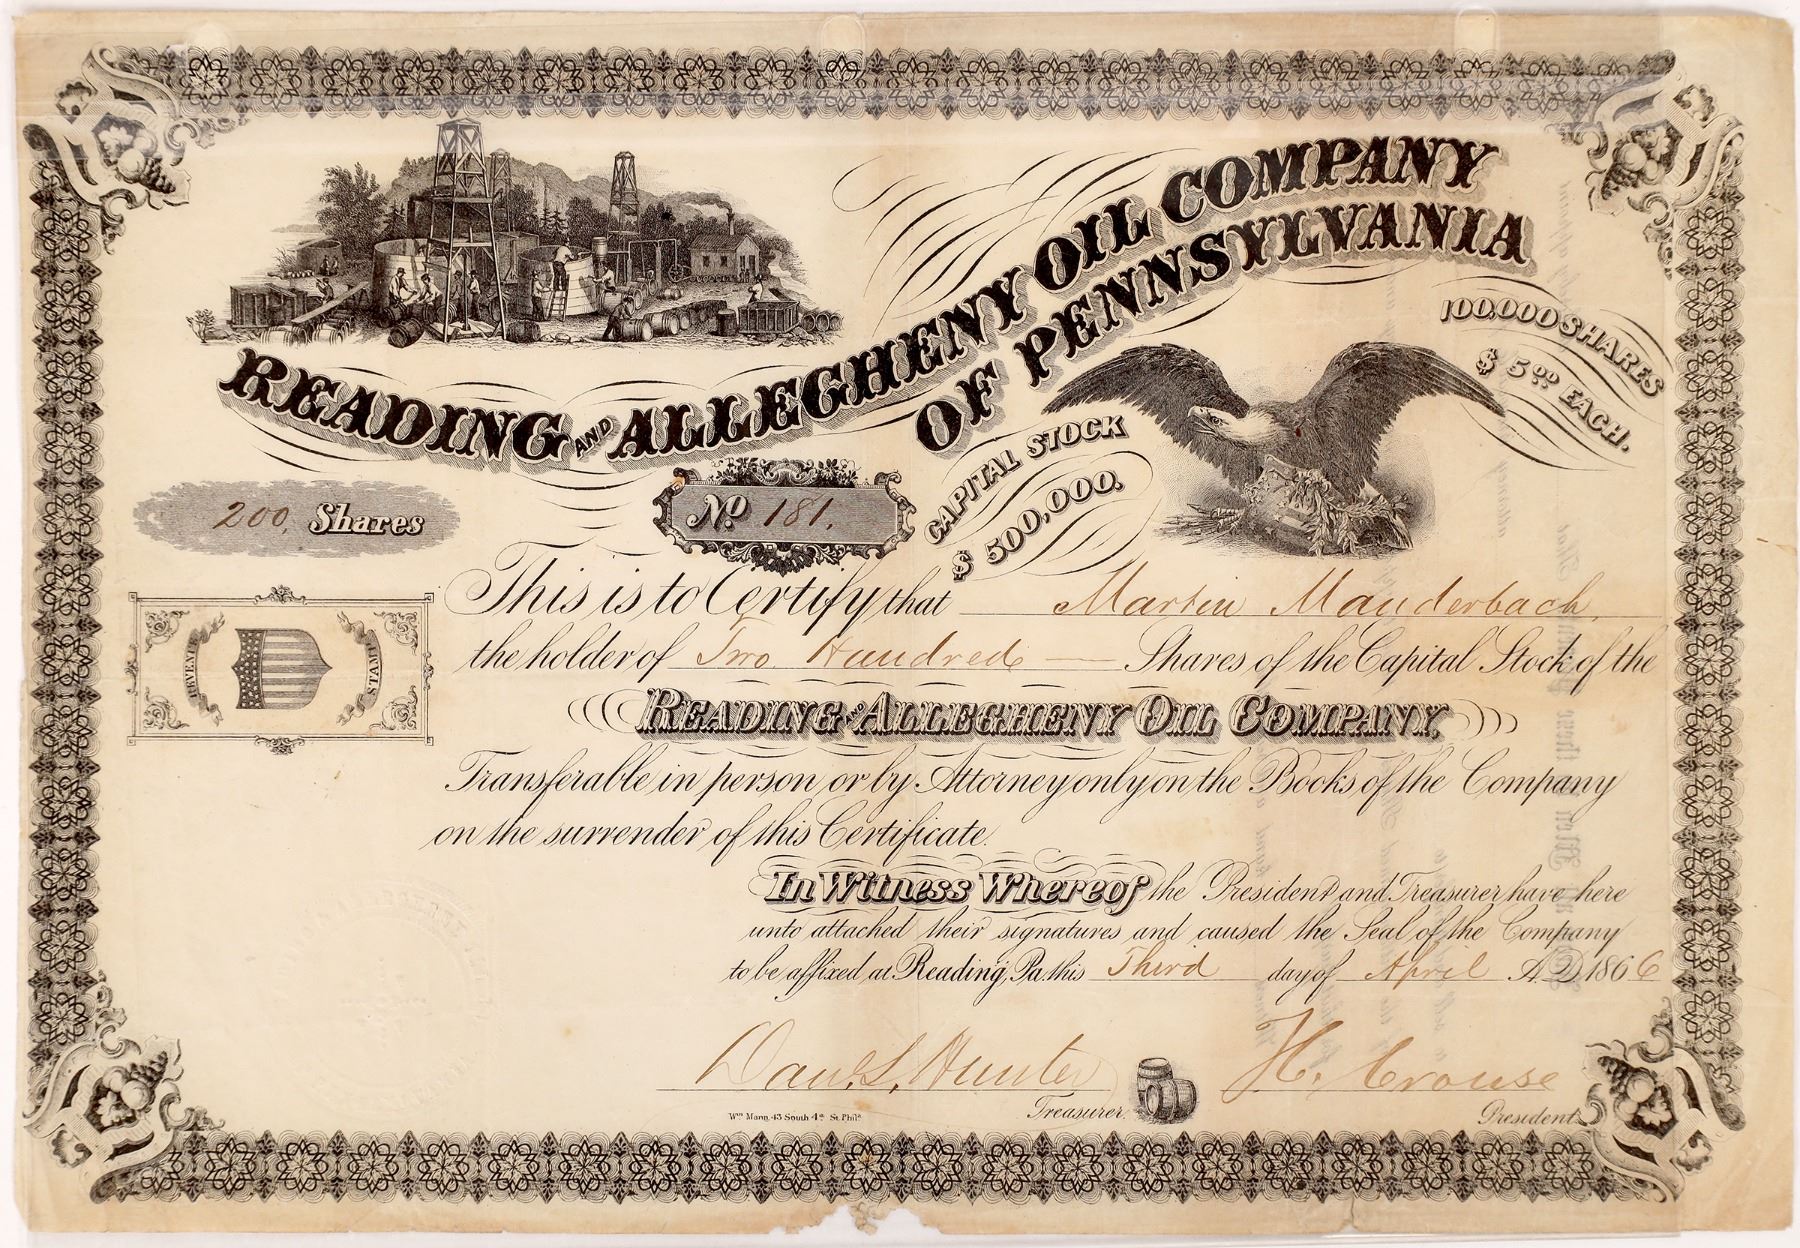 READING AND ALLEGHENY OIL COMPANY
OF PENNSYLVANIA
100,000 SHARES
$5.00 EACH.
CAPITAL STOCK
$500,000.
200, Shares
No. 181.
REVENUE STAMP
This is to Certify that Martin Mauderbach,
the holder of Two Hundred — Shares of the Capital Stock of the
READING AND ALLEGHENY OIL COMPANY,
Transferable in person or by Attorney only on the Books of the Company
on the surrender of this Certificate.
In Witness Whereof the President and Treasurer have here
unto attached their signatures and caused the Seal of the Company
to be affixed at Reading, Pa. this Third day of April A.D. 1866
Danl. S. Hunter H. Crouse
Treasurer. President
Wm. Mann, 43 South 4th St. Phila.